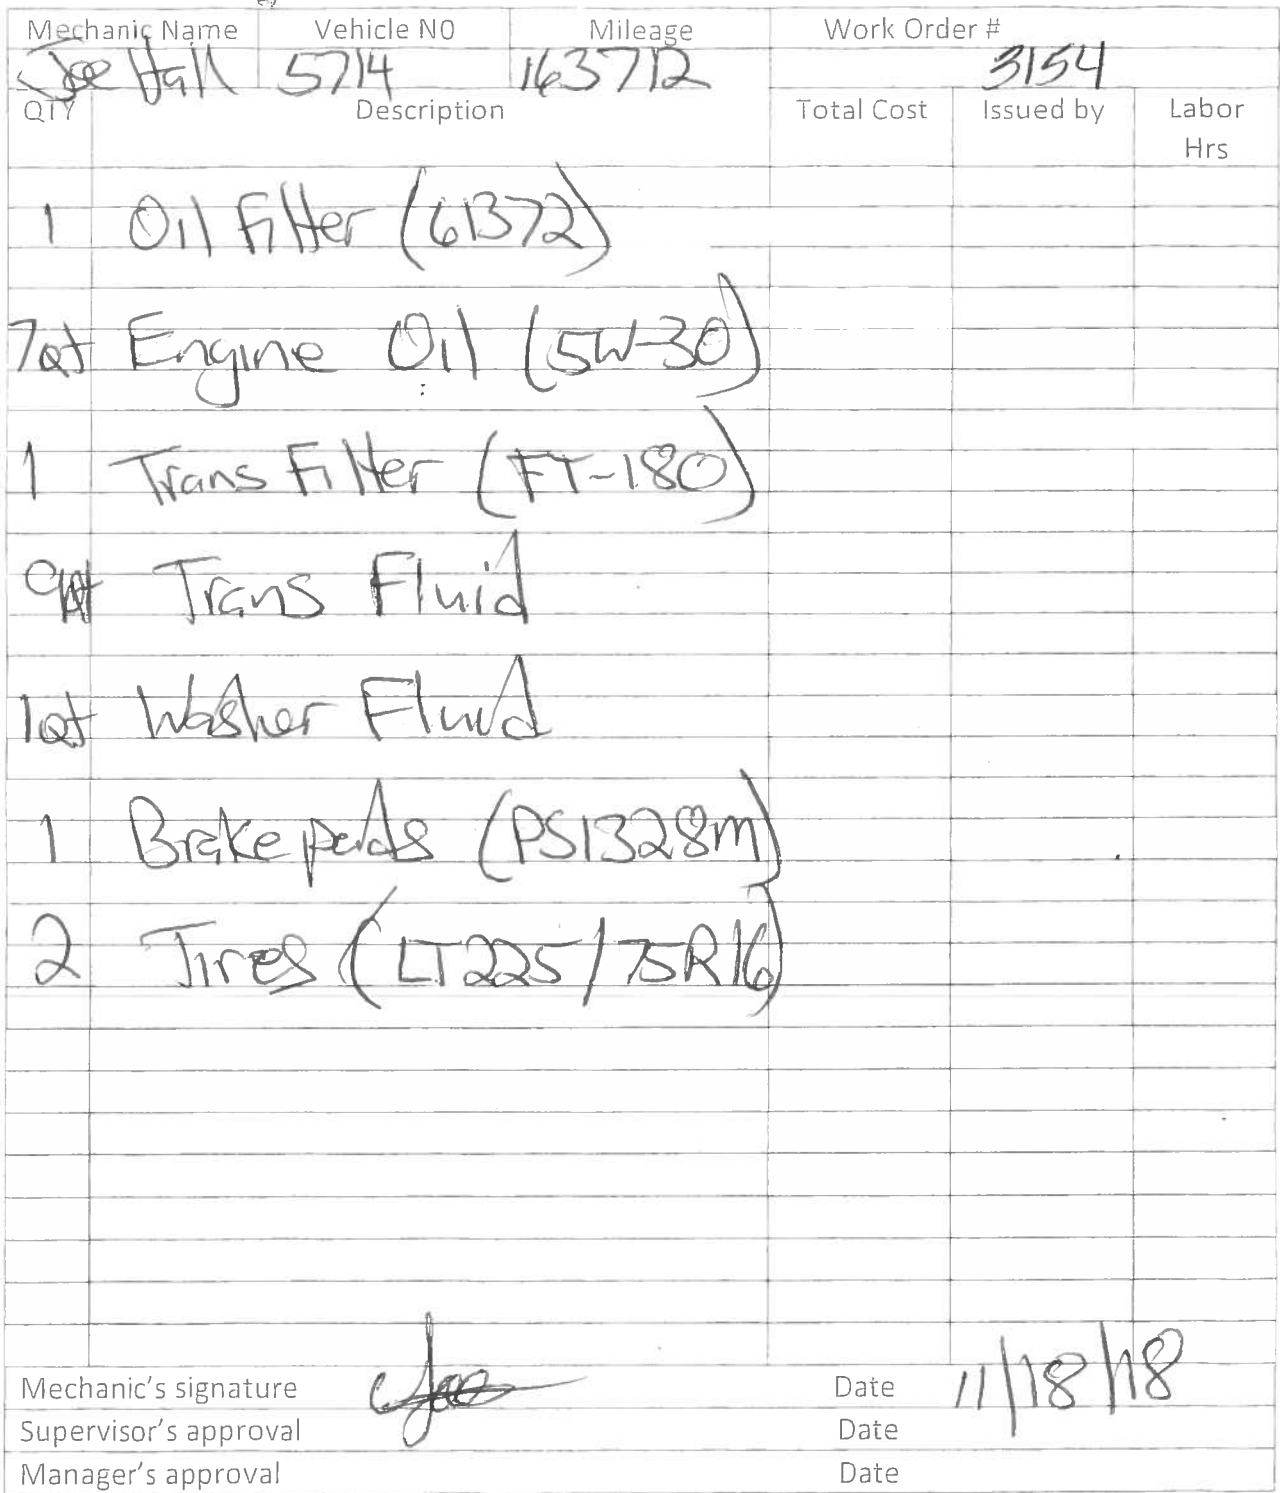 Mechanic Name Vehicle NO Mileage Work Order #
Joe Hall 5714 163712 3154
QTY Description Total Cost Issued by Labor Hrs
1 Oil Filter (61372)
7qt Engine Oil (5W-30)
1 Trans Filter (FT-180)
9qt Trans Fluid
1qt Washer Fluid
1 Brake pads (PS1328m)
2 Tires (LT225/75R16)
Mechanic's signature Joe Date 11/18/18
Supervisor's approval Date
Manager's approval Date